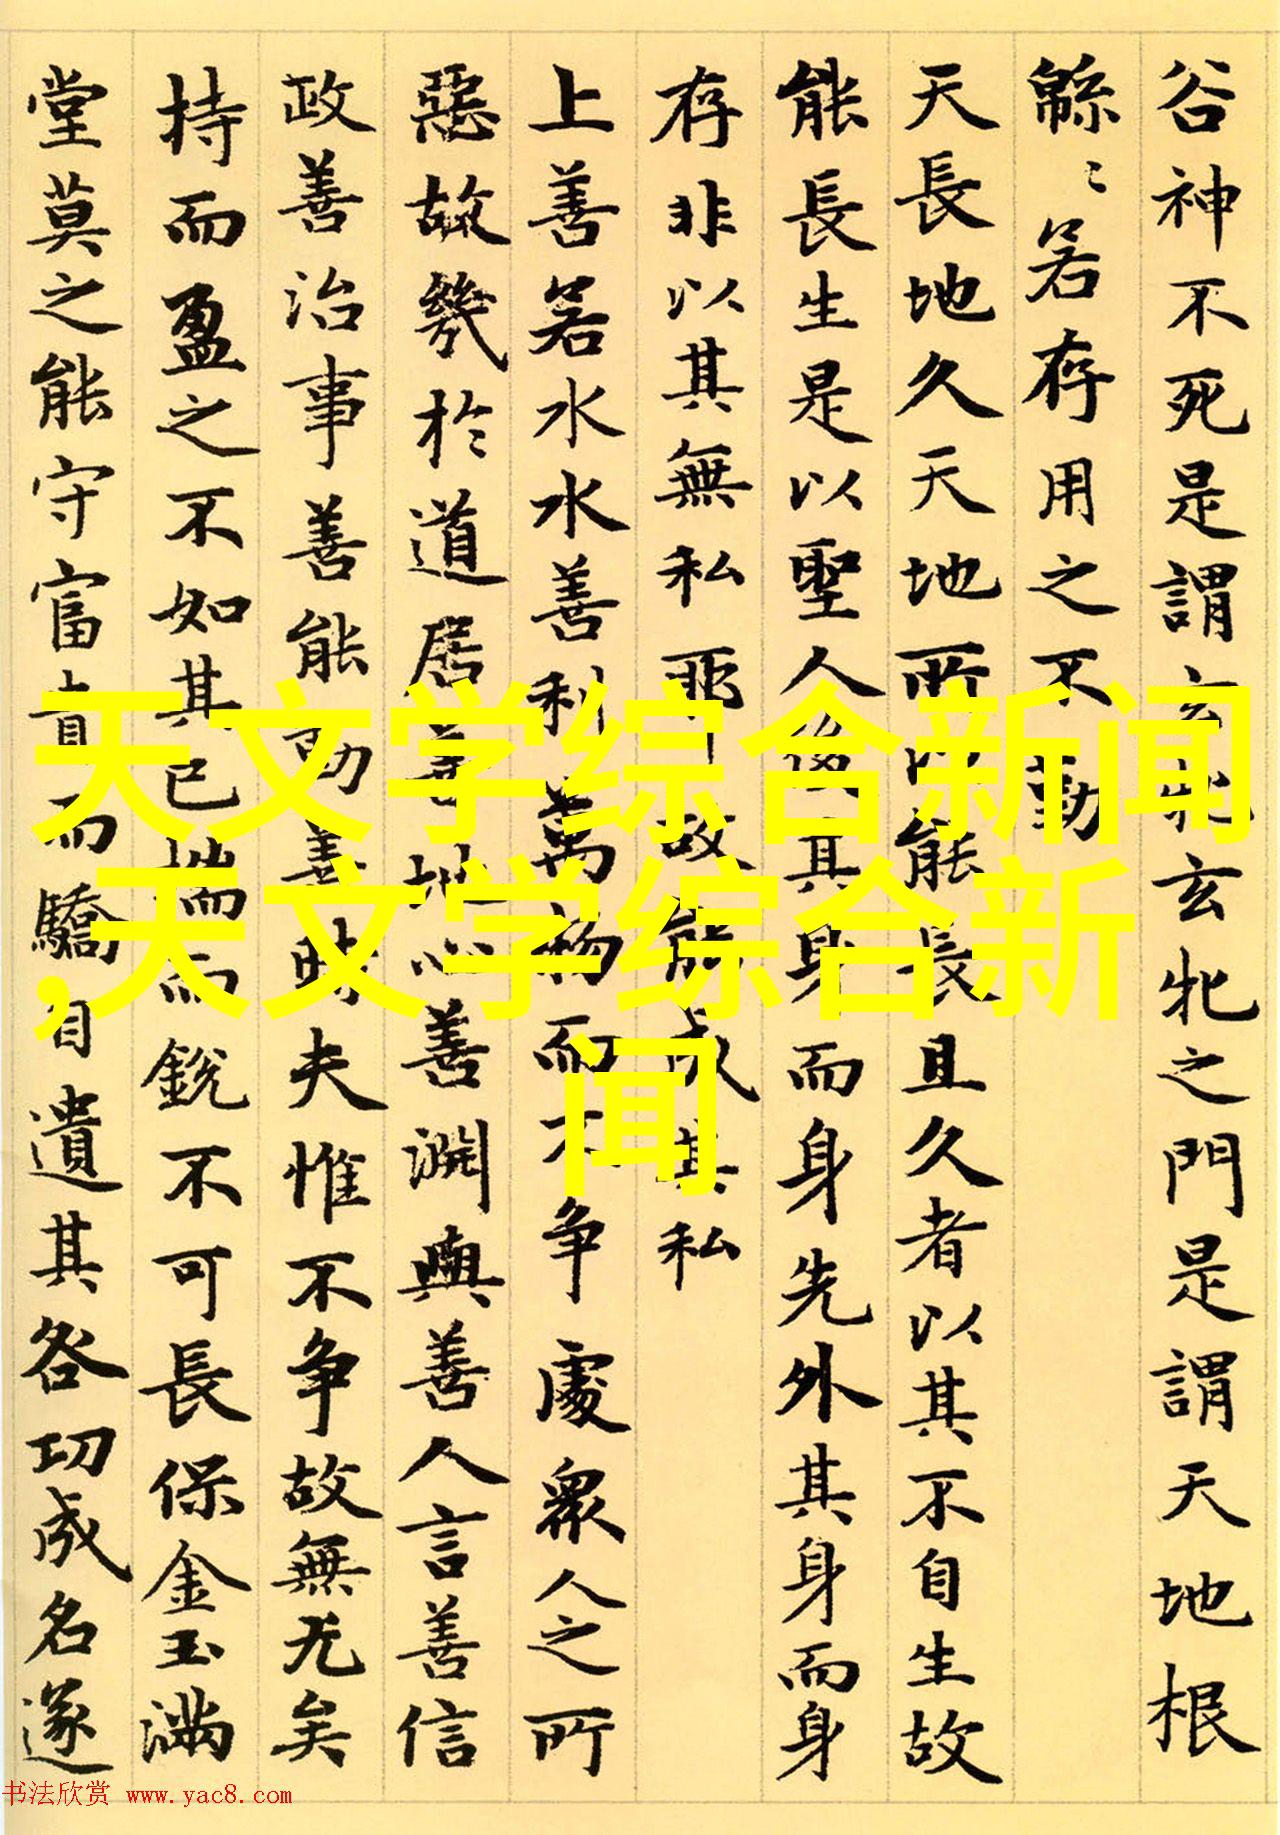 谷神不死是謂玄牝玄牝之門是謂天地根
緜〻若存用之不勤
天長地久天地所以能長且久者以其不自生故
能長生是以聖人後其身而身先外其身而身
存非以其無私耶故能成其私
上善若水水善利萬物而不争處衆人之所
惡故幾於道居善地心善淵與善人言善信
政善治事善能動善時夫惟不争故無尤矣
持而盈之不如其已揣而銳不可長保金玉滿
堂莫之能守富貴而驕自遺其咎功成名遂
天文学综合新闻
,天文学综合新
闻
书法欣赏 www.yac8.com